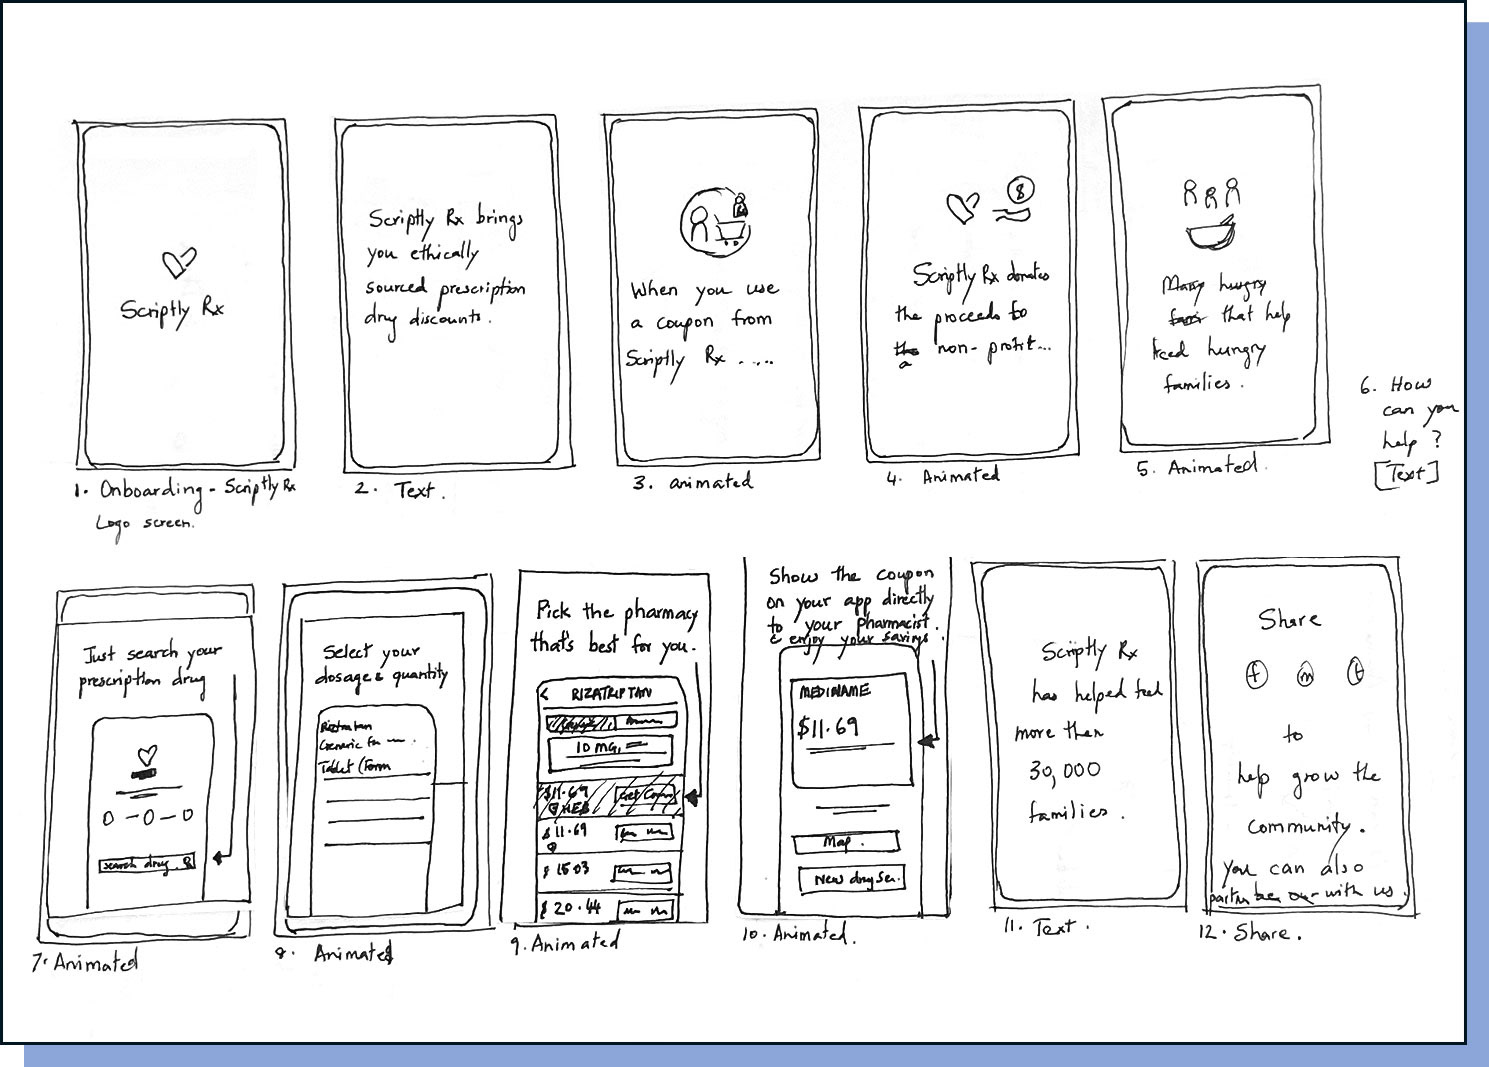 Scriptly Rx
1. Onboarding - Scriptly Rx
Logo screen.
Scriptly Rx brings
you ethically
sourced prescription
drug discounts.
2. Text.
When you use
a coupon from
Scriptly Rx .....
3. animated
$
Scriptly Rx donates
the proceeds to
the non-profit...
a
4. Animated
Many hungry
that help
feed hungry
families.
5. Animated.
6. How
can you
help ?
[Text]
Just search your
prescription drug
0 - 0 - 0
search drug.
7. Animated
Select your
dosage & quantity
Rizatriptan
Generic for
Tablet (Form
8. Animated
Pick the pharmacy
that's best for you.
< RIZATRIPTAN
10 MG,
$11.69 Get Coupon
HEB
$11.69
$15.03
$20.44
9. Animated
Show the coupon
on your app directly
to your pharmacist.
& enjoy your savings.
MEDINAME
$11.69
Map.
New drug Sea.
10. Animated.
Scriptly Rx
has helped feed
more than
30,000
families.
11. Text.
Share
f m t
to
help grow the
community.
You can also
partner with us.
12. Share.